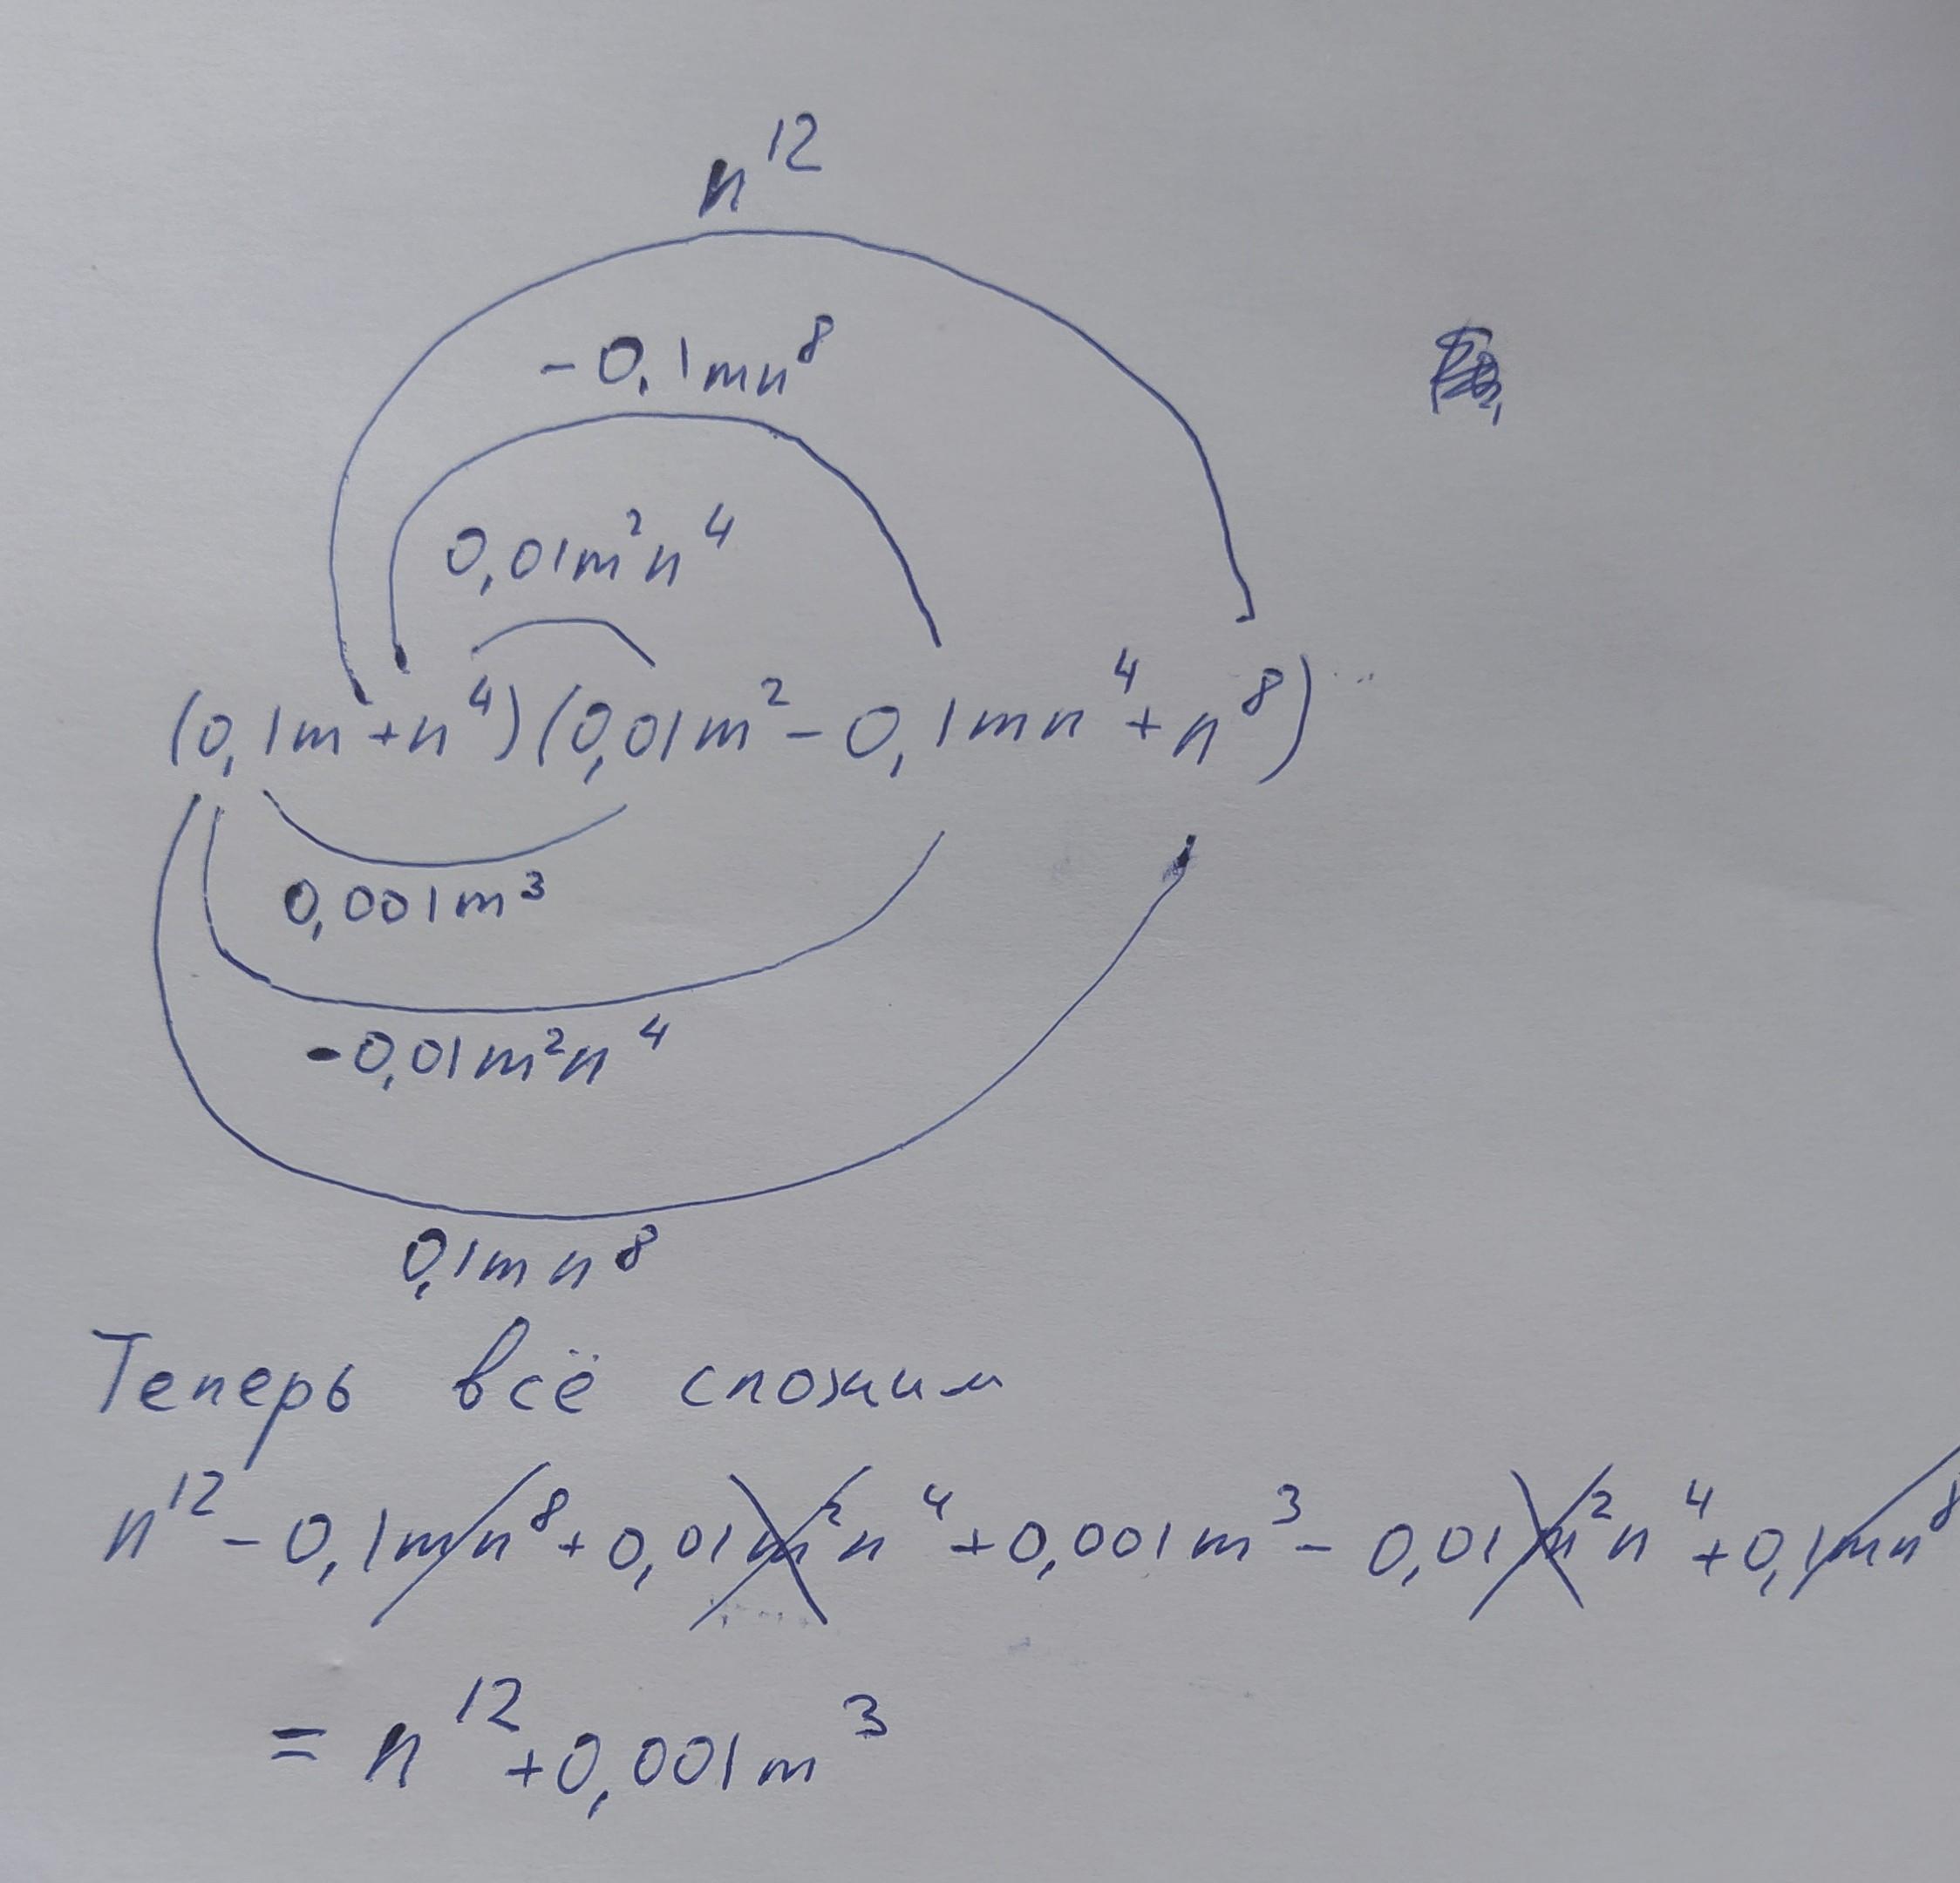 n¹²
-0,1mn⁸
0,01m²n⁴
(0,1m+n⁴)(0,01m²-0,1mn⁴+n⁸)
0,001m³
-0,01m²n⁴
0,1mn⁸
Теперь всё сложим
n¹²-0,1mn⁸+0,01m²n⁴+0,001m³-0,01m²n⁴+0,1mn⁸
=n¹²+0,001m³